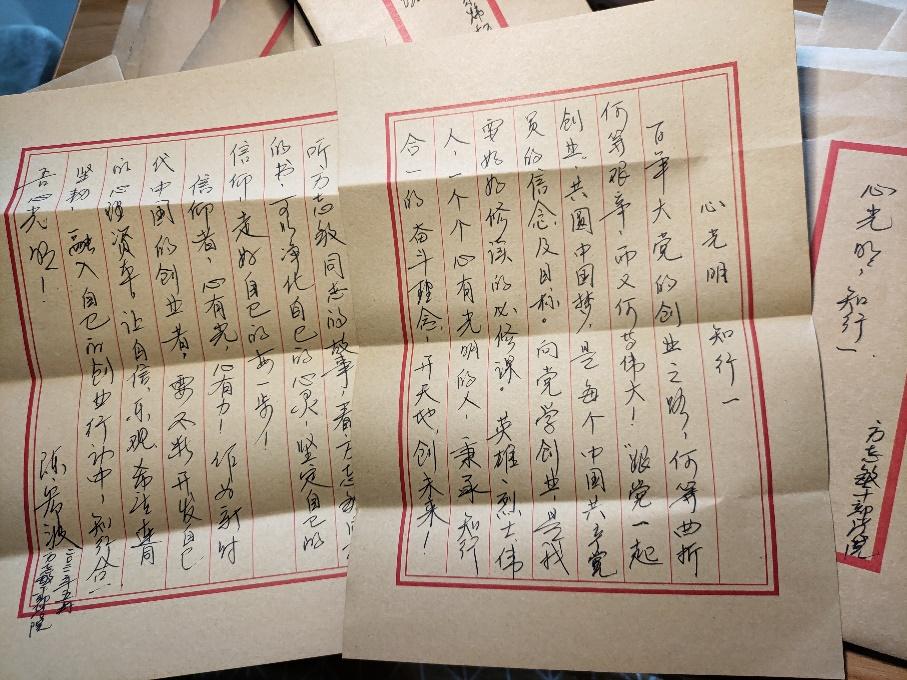 心光明 知行一
百年大党的创业之路，何等曲折
何等艰辛，而又何等伟大！“跟党一起
创业，共圆中国梦，是每个中国共产党
员的信念及目标。向党学创业是我
要好好修该的必修课。英雄、烈士、伟
人，一个个心有光明的人，秉承知行
合一的奋斗理念，开天地，创未来！
听方志敏同志的故事，看方志敏同
的书，可以净化自己的心灵，坚定自己的
信仰，走好自己的每一步！
信仰者，心有光，心有力！作为新时
代中国的创业者，要不断开发自己
的心理资本，让自信、乐观、希望、
坚韧，融入自己的创业行动中，知行合一
吾心光明！
方志敏干部学院
心光明，知行一
方志敏干部学院